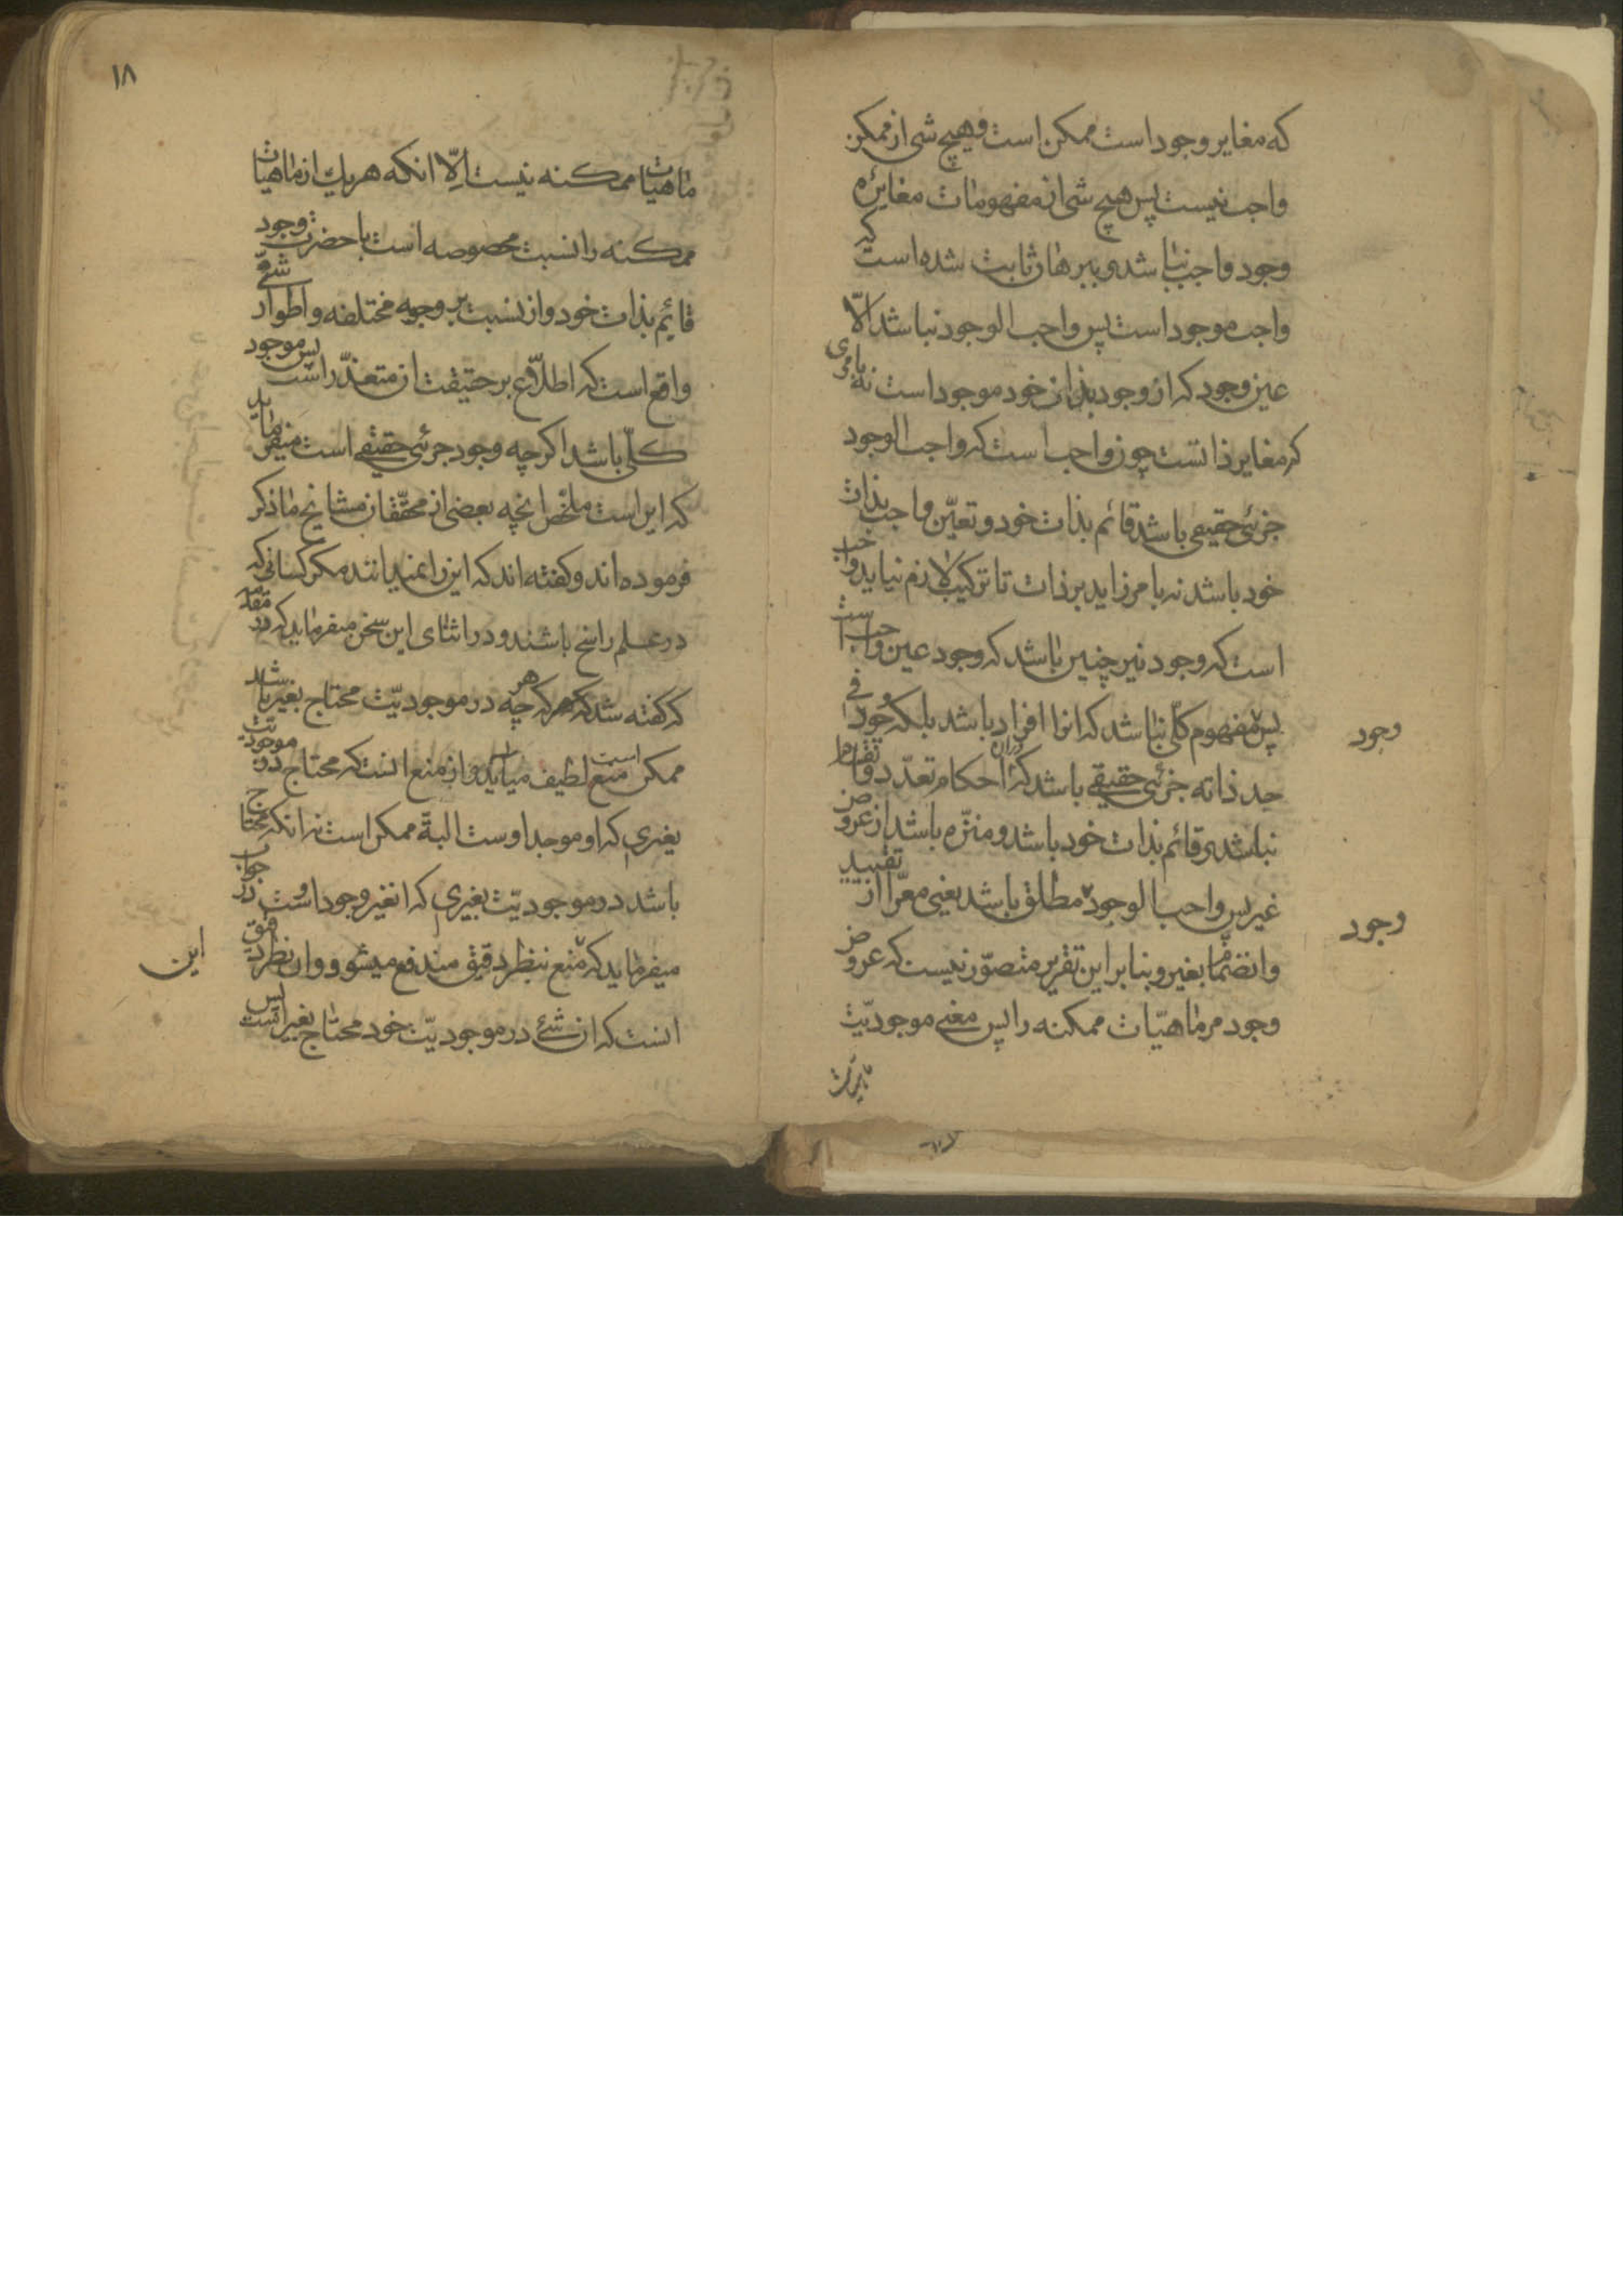 که مغایر وجود است ممکن است و هیچ شی از ممکن
واجب نیست پس هیچ شی از مفهومات مغایرهٔ
وجود واجب نباشد و ببرهان ثابت شده است که
واجب موجود است پس واجب الوجود نباشد الّا
عین وجود که ان وجود بذات خود موجود است نه بامری
که مغایر ذاتست چون واجب است که واجب الوجود
جزئی حقیقی باشد قائم بذات خود و تعیّن واجب بذات
خود باشد نه بامر زاید بر ذات تا ترکیب لازم نیاید واجب
است که وجود نیز چنین باشد که وجود عین واجب است
پس مفهوم کلّی نباشد که انرا افراد باشد بلکه وجود فی
وجود
حد ذاته جزئی حقیقی باشد که انرا احکام تعدّد و انقسام
نباشد و قائم بذات خود باشد و منزّه باشد از عروض
غیر پس واجب الوجود مطلق باشد یعنی معرّا از تقیید
وجود
وانضمام بغیر و بنا بر این تقریر متصوّر نیست که عروض
وجود مر ماهیّات ممکنه را پس معنی موجودیّت
۱۸
ماهیات ممکنه نیست الّا انکه هر یك از ماهیات
ممکنه را نسبت مخصوصه است با حضرت وجود
قائم بذات خود وان نسبت بر وجوه مختلفه و اطوار شتّی
واقع است که اطلاع بر حقیقت ان متعذّر است پس موجود
کلّی باشد اکرچه وجود جزئی حقیقی است میفرماید
که این است ملخّص انچه بعضی از محقّقان مشایخ ما ذکر
فرموده اند و کفته اند که این را نمیدانند مکر کسانی که
در علم راسخ باشند و در اثنای این سخن میفرماید که در مقدّمه
که کفته شد که هر چه در موجودیّت محتاج بغیر باشد
ممکن است منع لطیف میاید وان منع انست که محتاج در موجودیت
بغیری که او موجد اوست البتة ممکن است نه انکه محتاج
باشد در موجودیّت بغیری که ان غیر وجود اوست و در جواب
میفرماید که منع بنظر دقیق مندفع میشود وان نظر دقیق
این
انست که ان شئ در موجودیّت خود محتاج بغیر است پس